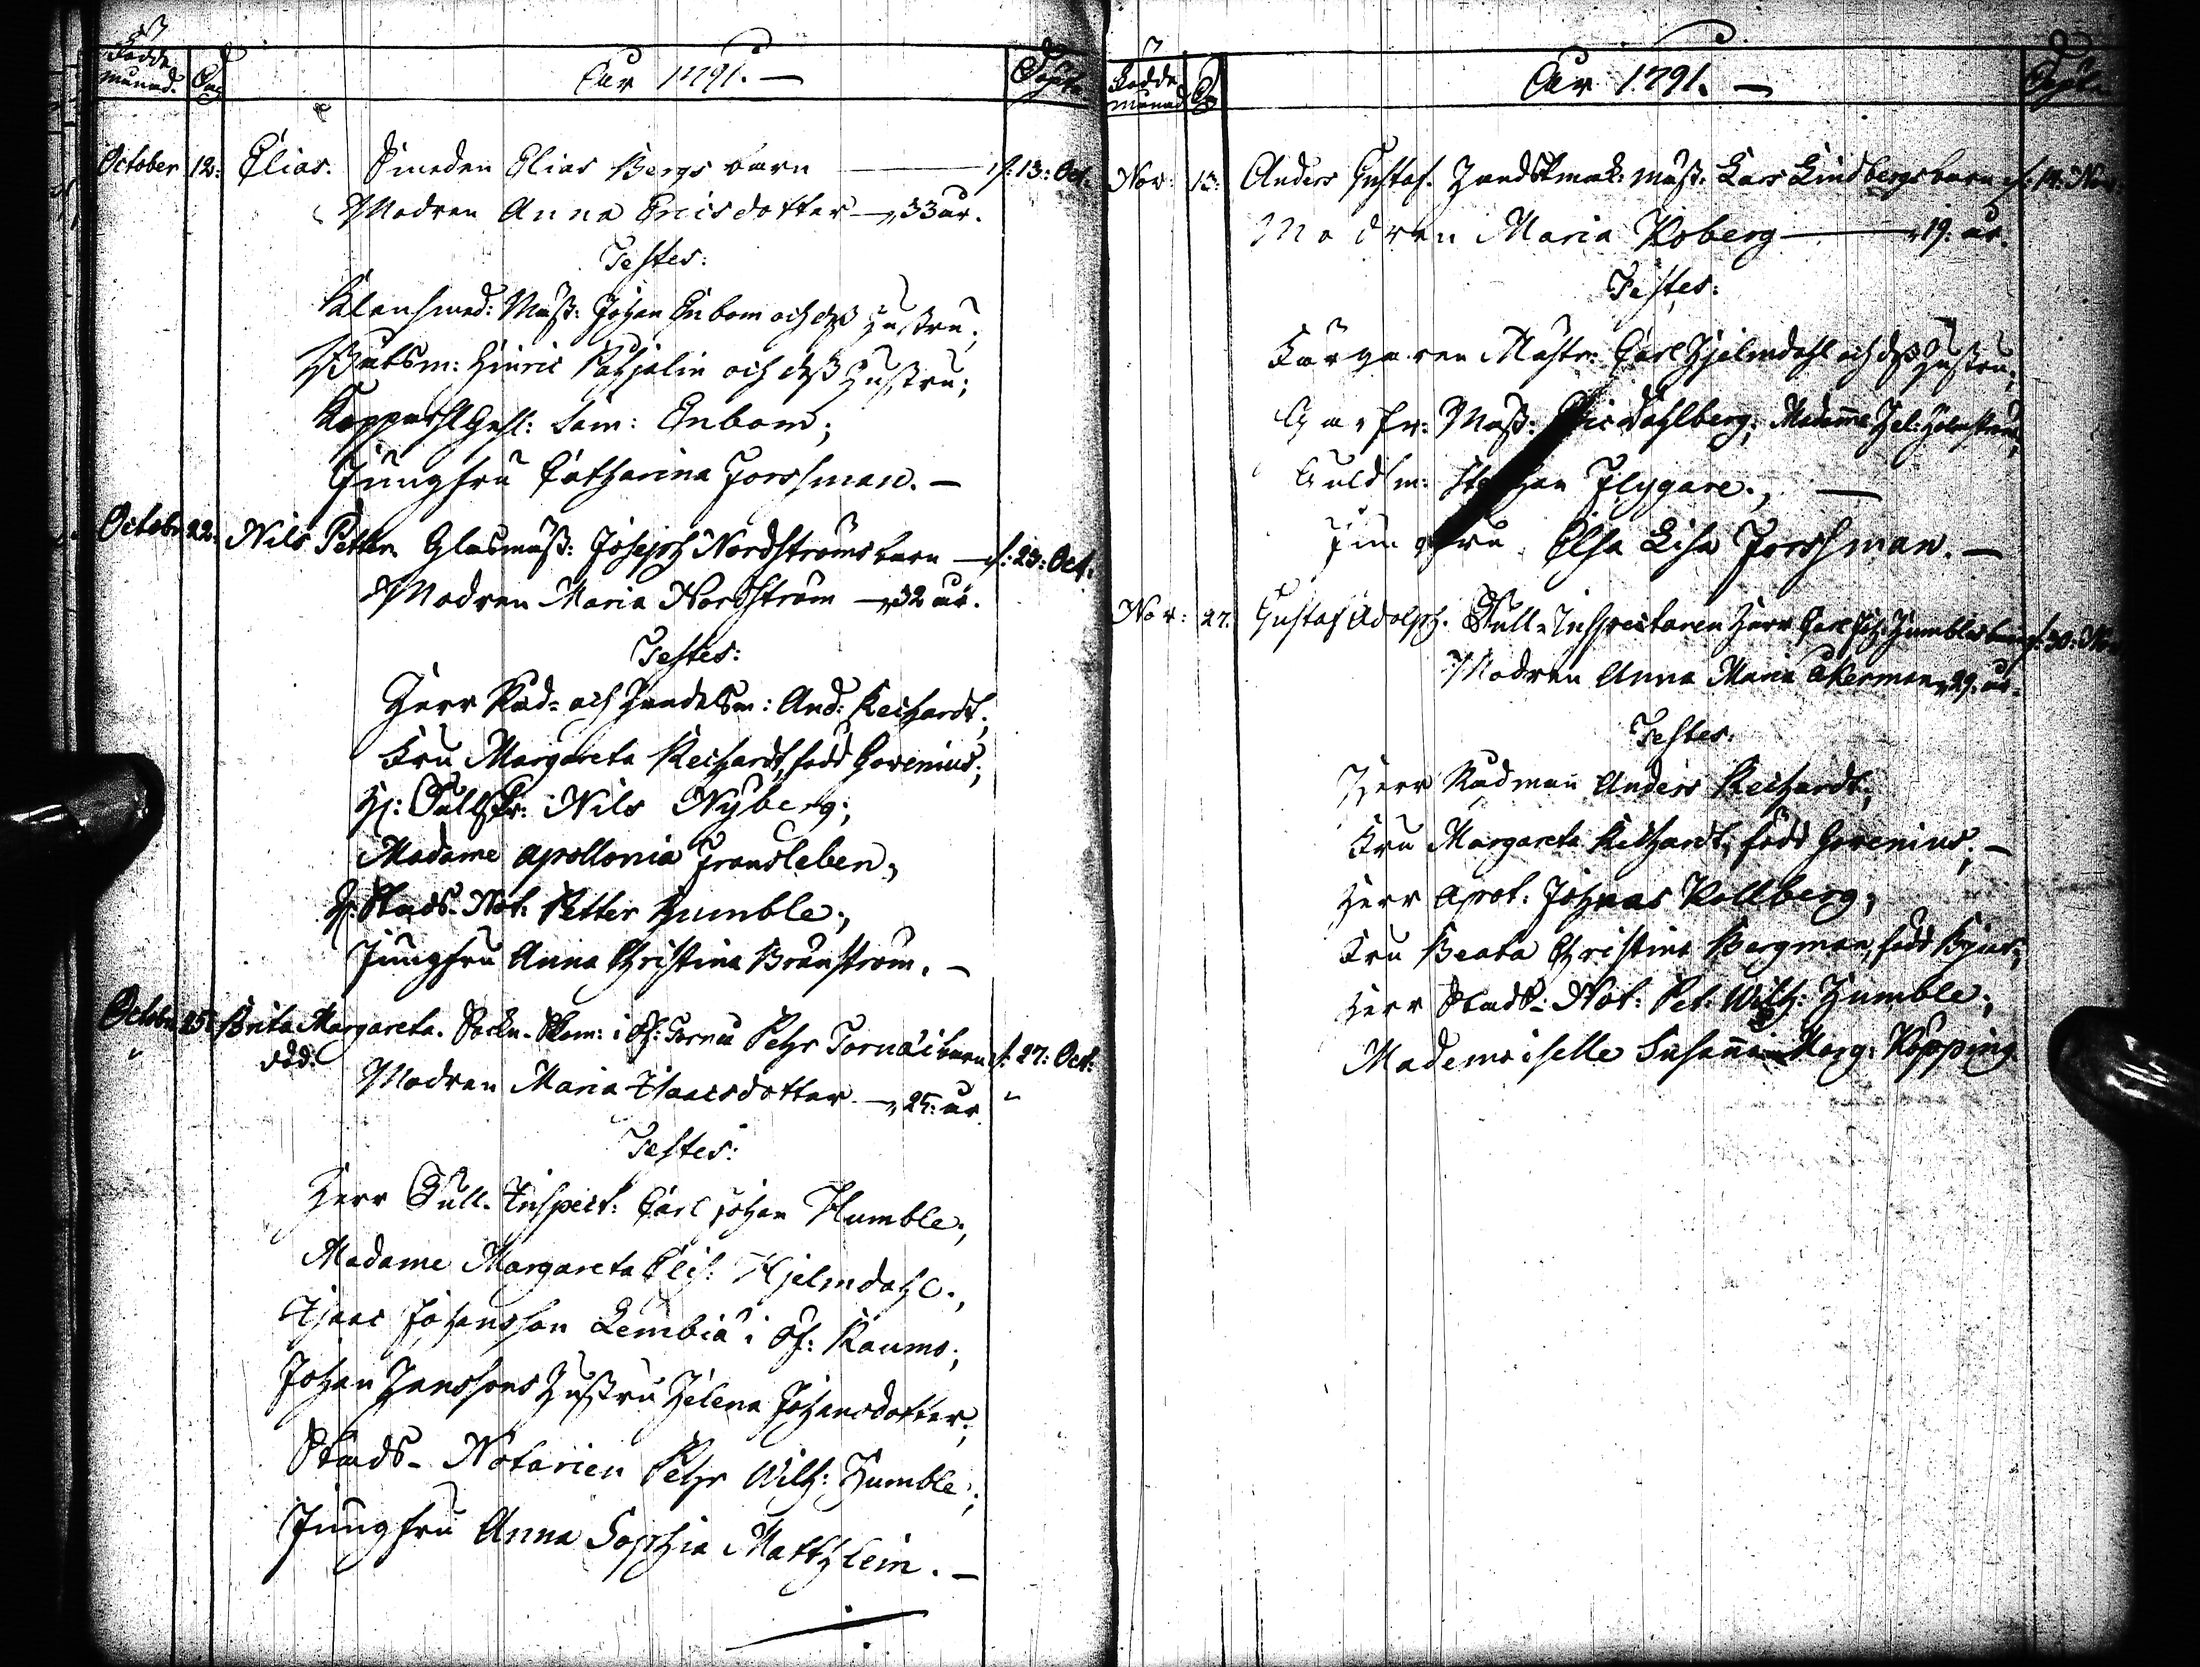 Födde månad. Dag Åår 1791. — Döpt.
October 12: Elias. Smeden Elias Bergs barn — d: 13: Oct.
Modren Anna Ericsdotter — 33 år.
Testes:
Klensmed: Mäst: Johan Enbom och dess Hustru;
Båtsm: Hinric och dess Hustru;
Gesl: Sam: Enbom;
Jungfru Catharina Forssman. —
Octobr 22: Nils Petter. Glasmäst: Joseph Nordströms barn — d: 23: Oct:
Modren Maria Nordström — 32 år.
Testes:
Herr Råd- och Handelsm: And: Reichardt;
Fru Margareta Reichardt, född Govenius;
H: Tullskr: Nils Nyberg;
Madame Apollonia Fransleben;
H: Stads-Not: Petter Humble;
Jungfru Anna Christina Brånström. —
Octobr 25: Brita Margareta. Sockn-Skom: i Öf: Torneå Pehr Tornä'i barn d: 27: Oct:
död.
Modren Maria Isaacsdotter — 25: år
Testes:
Herr Tull-Inspect: Carl Johan Humble;
Madame Margareta Elis: Hjelmdahl;
Isaac Johansson Lembiä i Öf: Raumo;
Johan Hanssons Hustru Helena Johansdotter;
Stads-Notarien Pehr Wilh: Humble;
Jungfru Anna Sophia Matthlein. —
Födde månad Dag Åår 1791. — Döpt.
Nov: 13: Anders Gustaf. Handskmak: mäst: Lars Lindbergs barn d: 14: Nov
Modren Maria Koberg — 19: år.
Testes:
Färgaren Mästr: Carl Hjelmdahl och dess Hustru;
Mäst: Eric Dahlberg; Madame Hel: Holmström;
Guldsm: Stephan Flygare; —
Jungfru Elsa Lisa Forssman. —
Nov: 27. Gustaf Adolph. Tull-Inspectoren Herr Carl Joh: Humbles barn d: 30: Nov
Modren Anna Maria Åkerman 29. år.
Testes:
Herr Rådman Anders Reichardt;
Fru Margareta Reichardt, född Govenius; —
Herr Apot: Johnas Kollberg;
Fru Beata Christina Bergman, född Bjur;
Herr Stads-Not: Pet: Wilh: Humble;
Mademoiselle Susanna Marg: Köpping